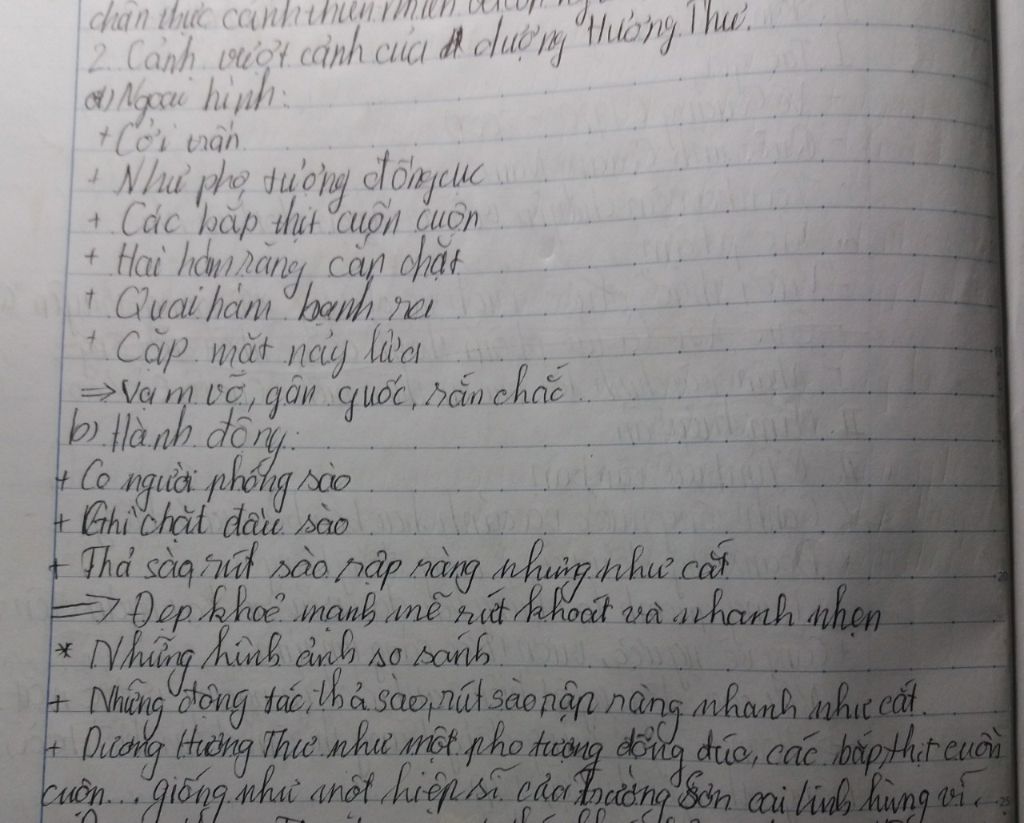 chân thực cảnh thiên nhiên
2. Cảnh vượt cảnh của dượng Hương Thư.
a) Ngoại hình:
+ Cởi trần
+ Như phọ tượng đồng cục
+ Các bắp thịt cuộn cuộn
+ Hai hàm răng cắn chặt
+ Quai hàm bạnh ra
+ Cặp mắt nảy lửa
⇒ Vạm vỡ, gân guốc, rắn chắc
b) Hành động:
+ Co người phóng sào
+ Ghì chặt đầu sào
+ Thả sào, rút sào rập ràng nhưng như cắt
⇒ Đẹp khoẻ mạnh mẽ rứt khoát và nhanh nhẹn
* Những hình ảnh so sánh
+ Những động tác, thả sào, rút sào rập ràng nhanh như cắt.
+ Dượng Hương Thư như một pho tượng đồng đúc, các bắp thịt cuồn
cuộn... giống như một hiệp sĩ của Trường Sơn oai linh hùng vĩ.